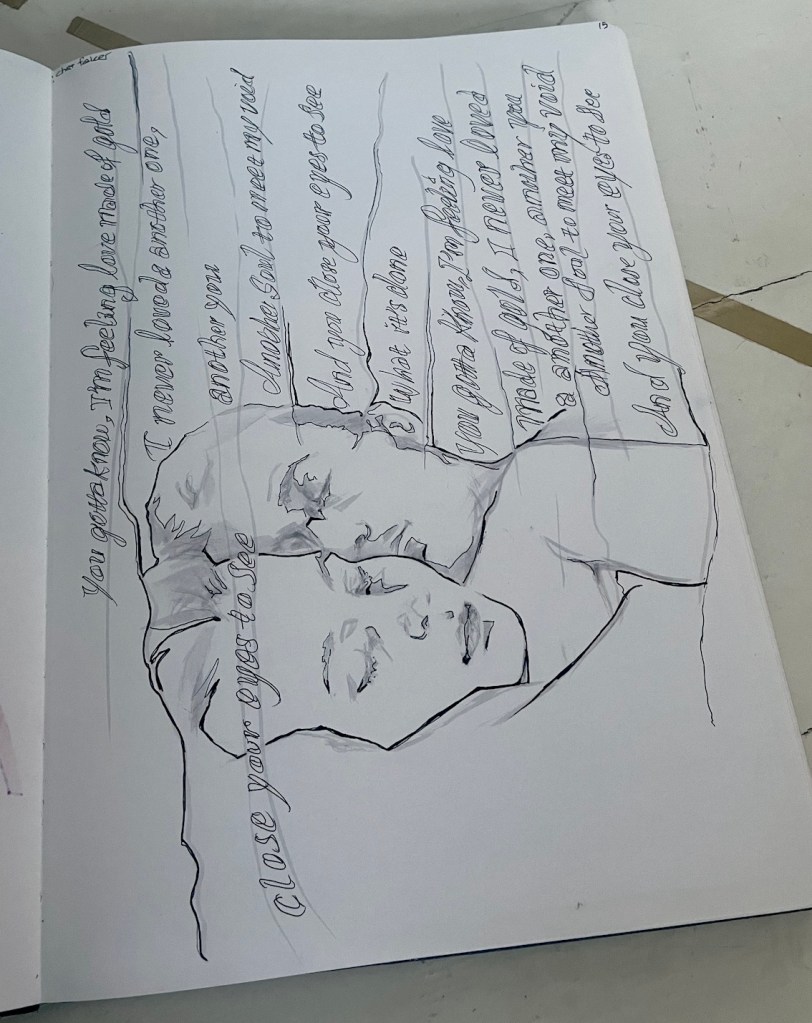 You gotta know, I'm feeling love made of gold
I never loved a another one,
another you
Another Soul to meet my void
And you close your eyes to see
What it's done
You gotta know, I'm feeling love
made of gold, I never loved
a another one, another you
Another Soul to meet my void
And you close your eyes to see
close your eyes to see